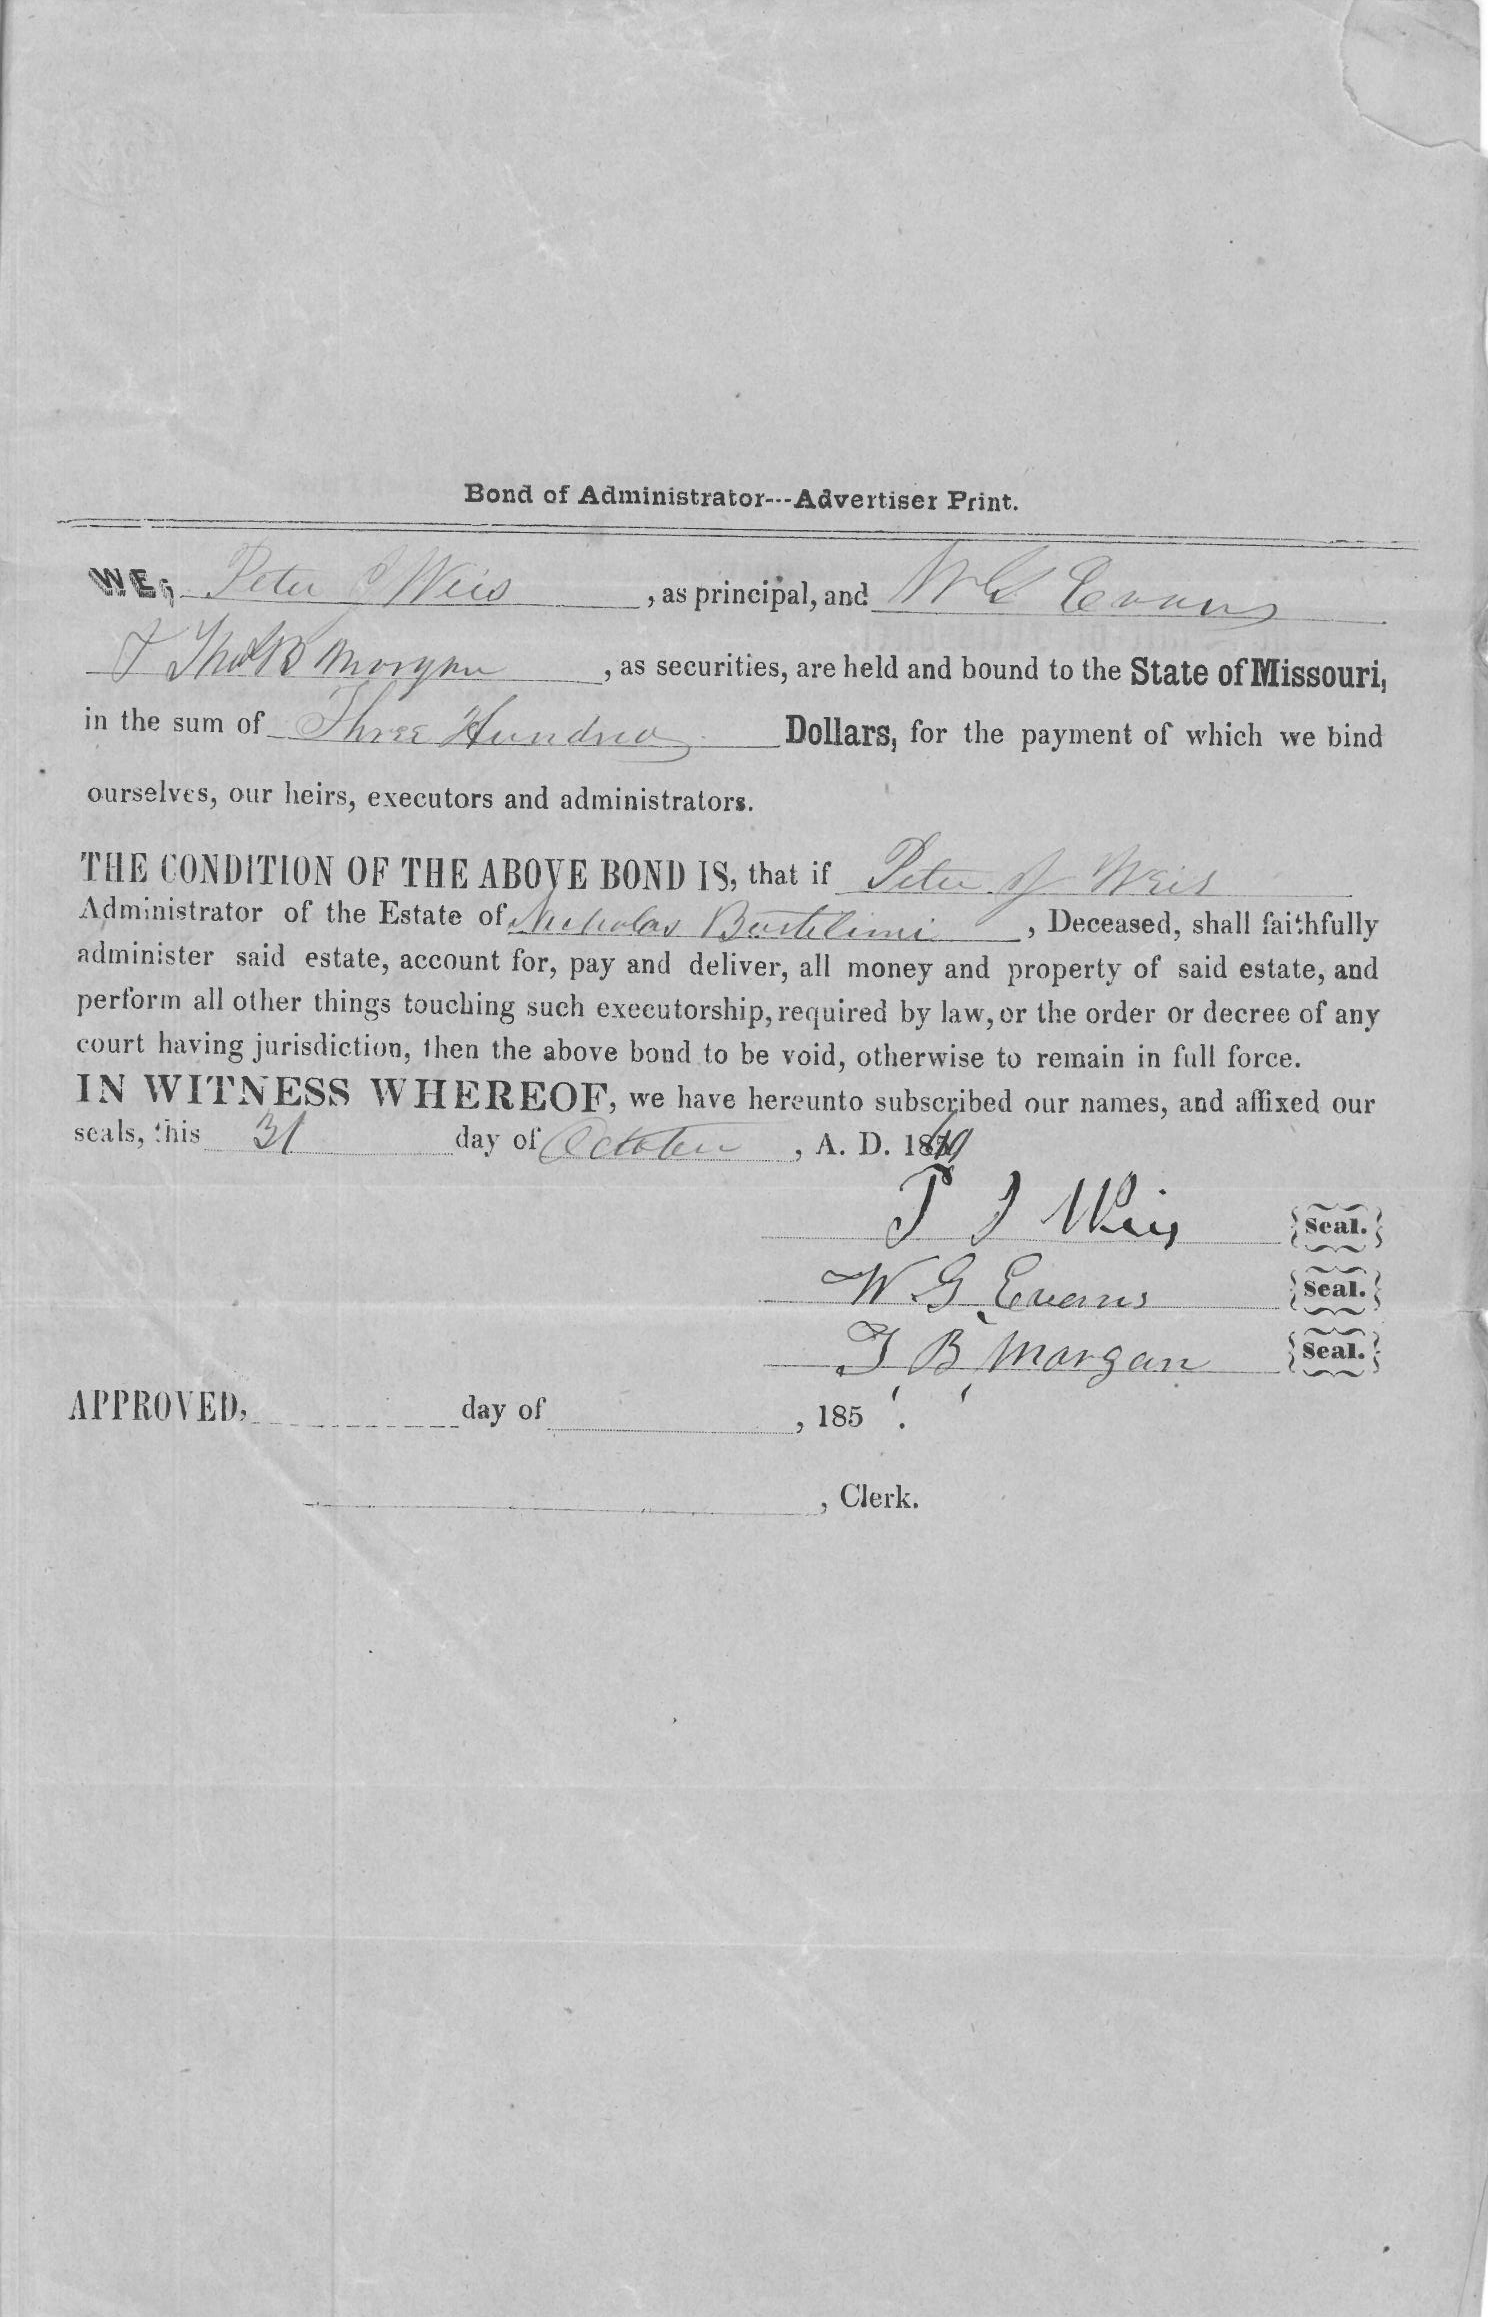 Bond of Administrator---Advertiser Print.
WE, Peter J Weis, as principal, and W G Evans
& Thos B Morgan, as securities, are held and bound to the State of Missouri,
in the sum of Three Hundred Dollars, for the payment of which we bind
ourselves, our heirs, executors and administrators.
THE CONDITION OF THE ABOVE BOND IS, that if Peter J Weis
Administrator of the Estate of Nicholas, Deceased, shall faithfully
administer said estate, account for, pay and deliver, all money and property of said estate, and
perform all other things touching such executorship, required by law, or the order or decree of any
court having jurisdiction, then the above bond to be void, otherwise to remain in full force.
IN WITNESS WHEREOF, we have hereunto subscribed our names, and affixed our
seals, this 31 day of October, A. D.
P J Weis Seal.
W. G. Evans Seal.
T B Morgan Seal.
APPROVED, day of , 185 .
, Clerk.